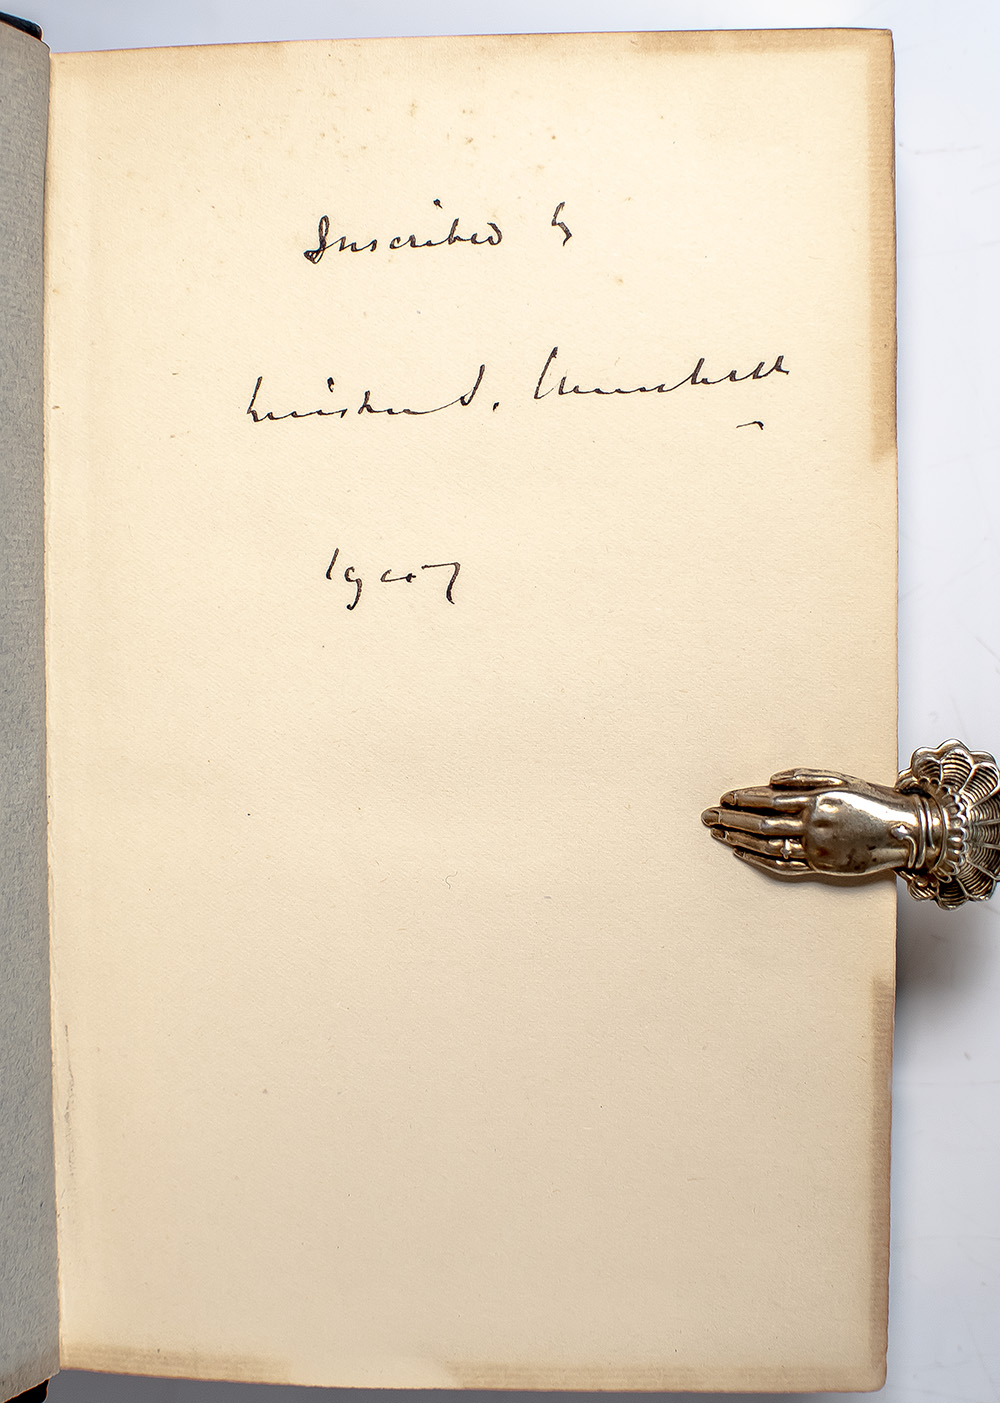 Inscribed by
Winston S. Churchill
1907